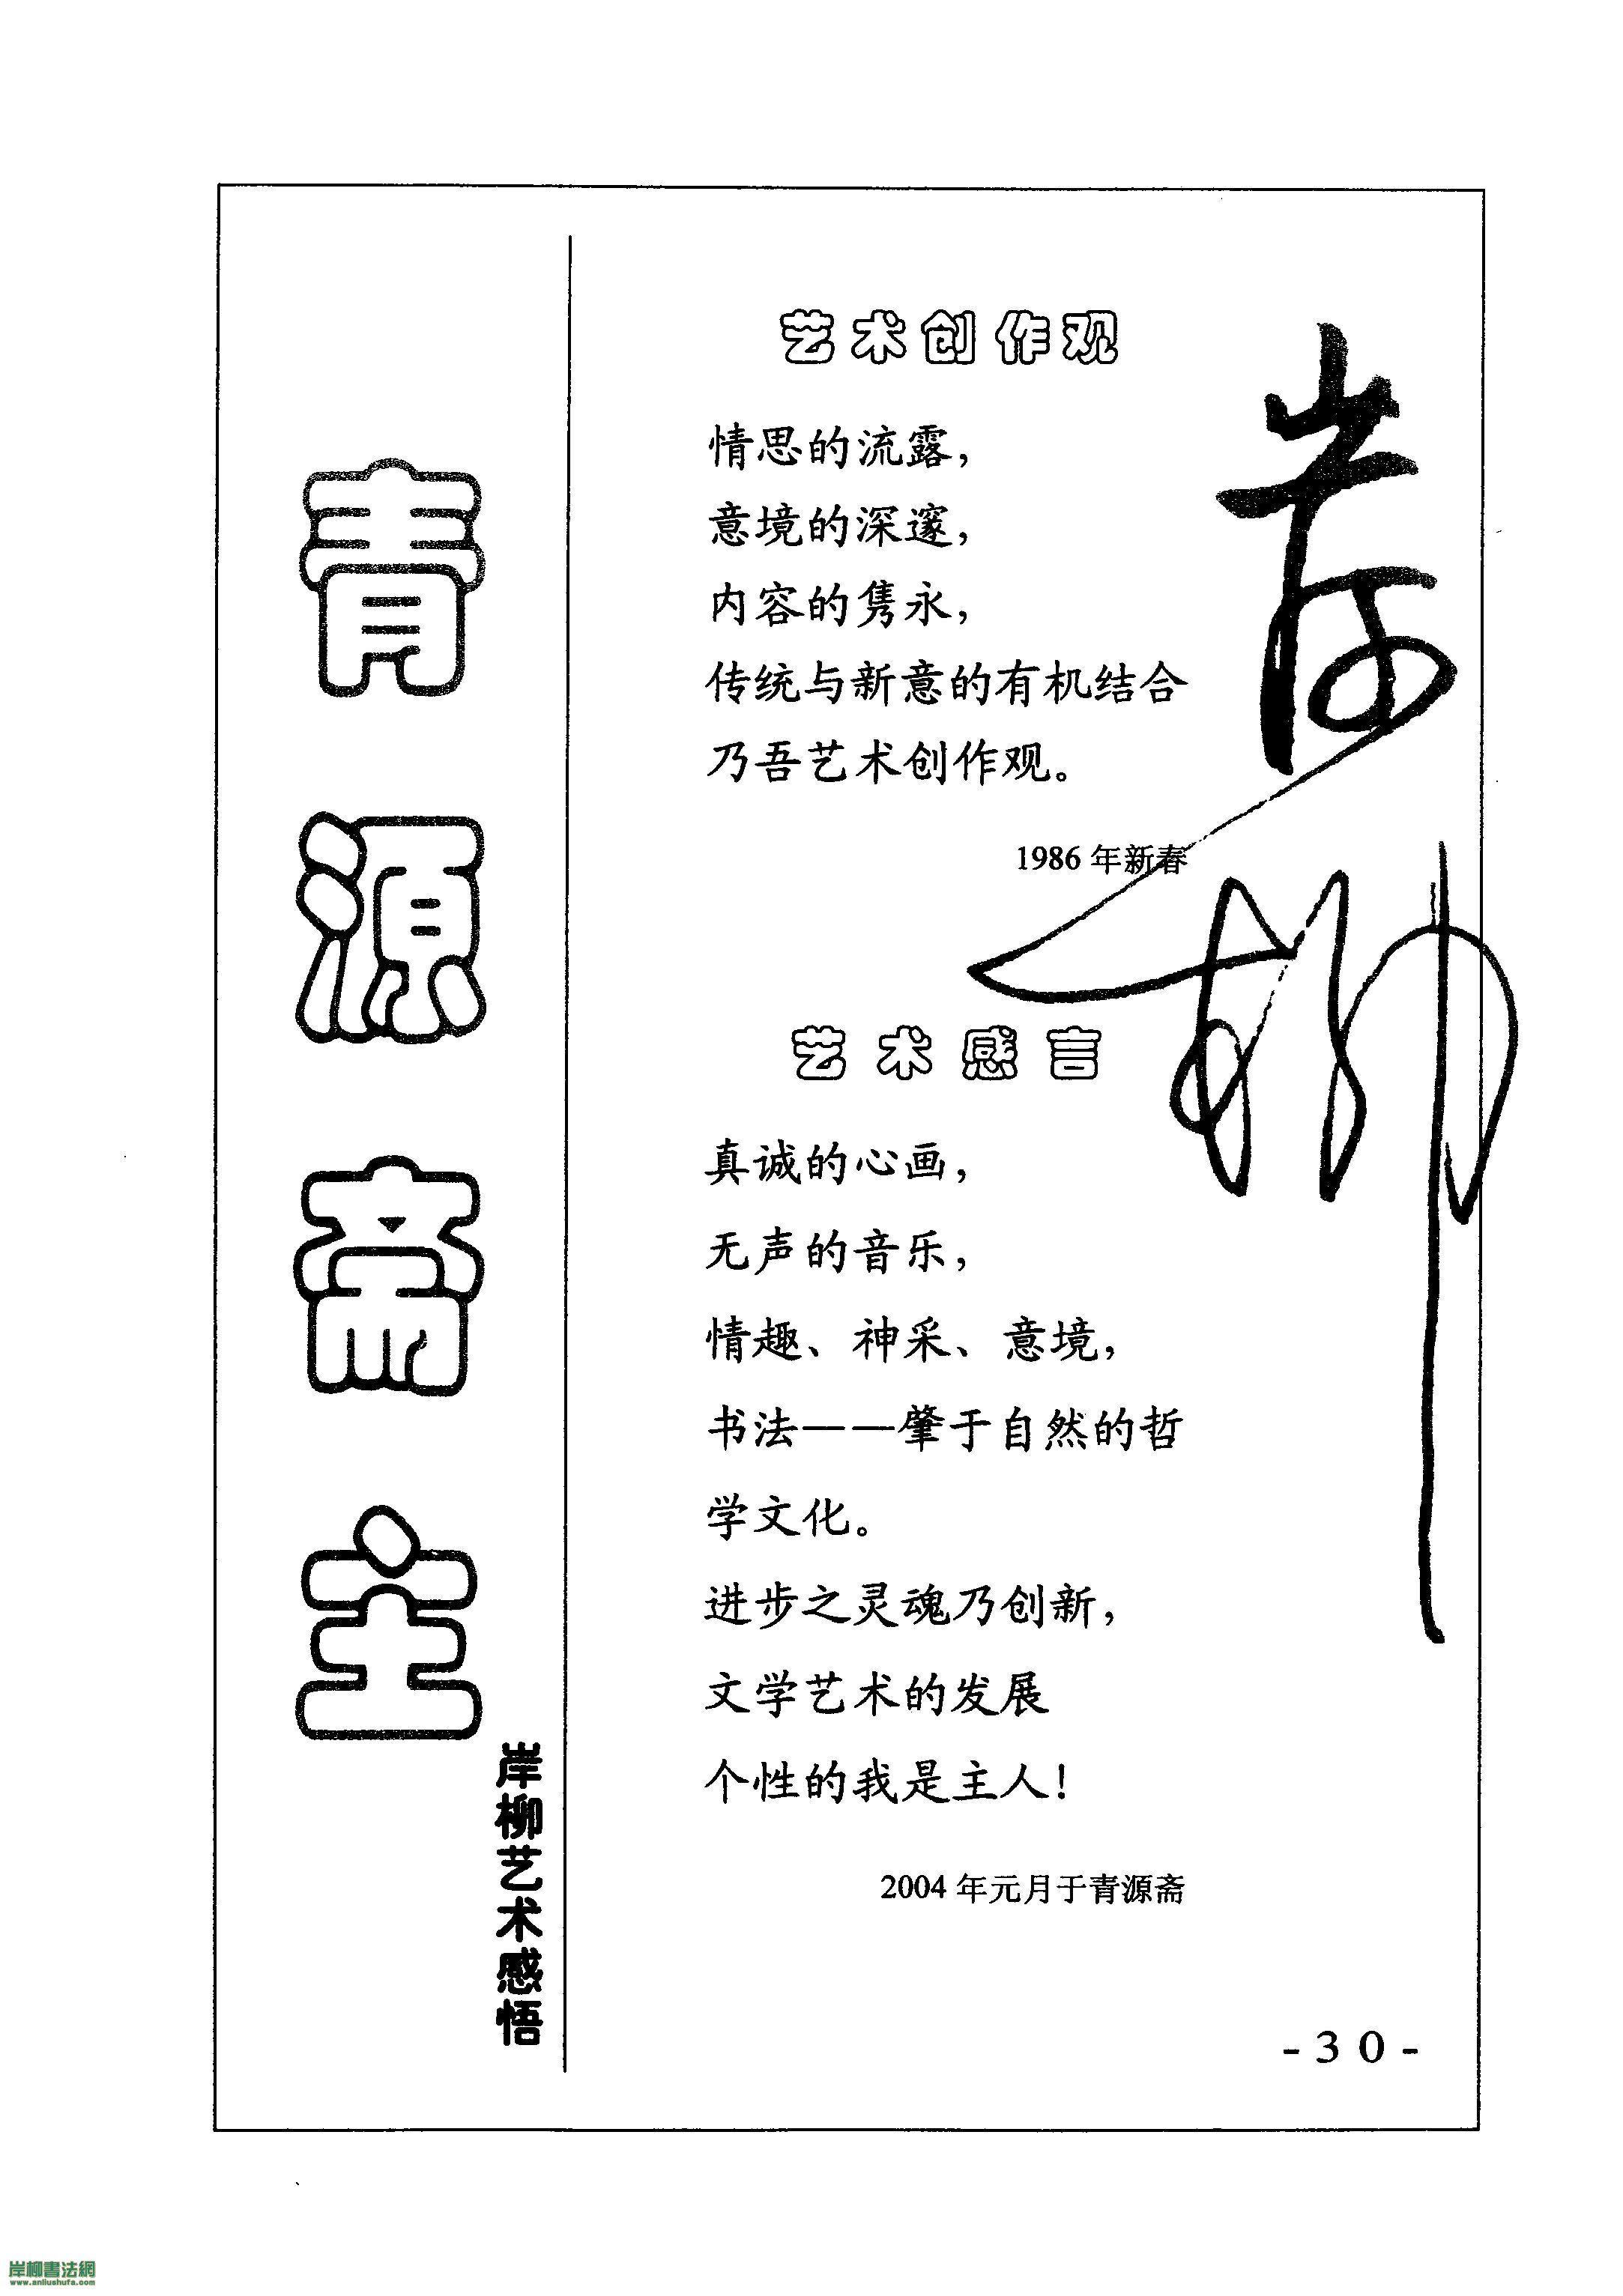 青源斋主
岸柳艺术感悟
艺术创作观
情思的流露，
意境的深邃，
内容的隽永，
传统与新意的有机结合
乃吾艺术创作观。
1986年新春
岸柳
艺术感言
真诚的心画，
无声的音乐，
情趣、神采、意境，
书法——肇于自然的哲
学文化。
进步之灵魂乃创新，
文学艺术的发展
个性的我是主人！
2004年元月于青源斋
-30-
岸柳書法網
www.anliushufa.com